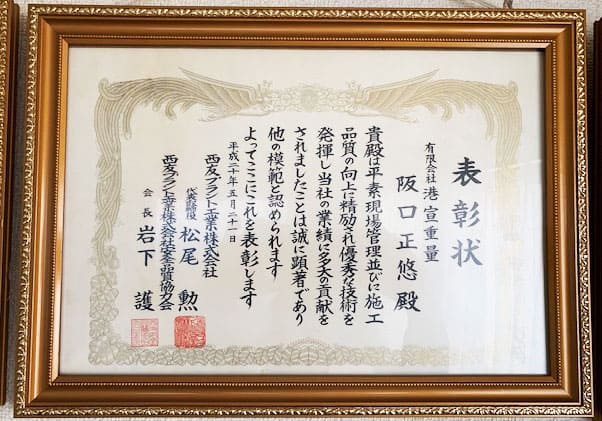 表彰状
有限会社港宣重量
阪口正悠殿
貴殿は平素現場管理並びに施工
品質の向上に精励され優秀な技術を
発揮し当社の業績に多大の貢献を
されましたことは誠に顕著であり
他の模範と認められます
よってここにこれを表彰します
平成二十年五月二十一日
西友プラント工業株式会社
代表取締役 松尾 勲
西友プラント工業株式会社安全品質協力会
会長 岩下 護